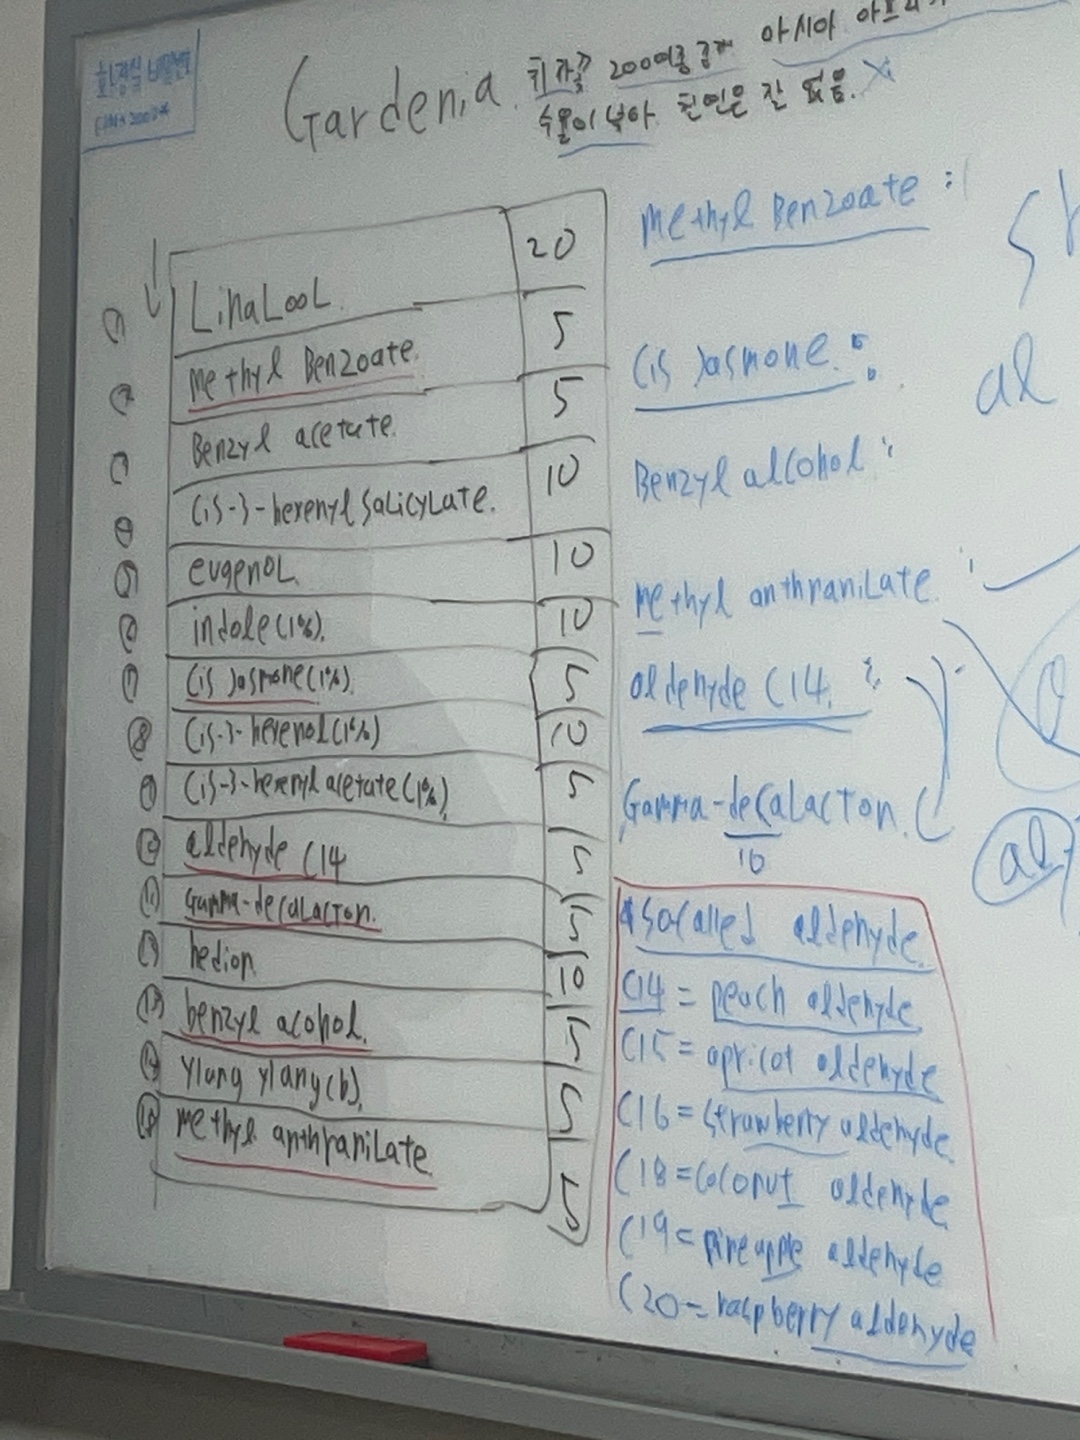 화장실 비밀번호
Gardenia. 치자꽃 200여종 공개 아시아 아프리카
수율이 낮아 천연은 잘 없음. X
① LinaLooL. 20
② methyl Benzoate. 5
③ Benzyl acetate. 5
④ Cis-3-hexenyl SaLicyLate. 10
⑤ eugenoL. 10
⑥ indole(1%). 10
⑦ Cis Jasmone(1%). 5
⑧ Cis-3-hexenol(1%) 10
⑨ Cis-3-hexenyl acetate(1%) 5
⑩ aldehyde C14 5
⑪ Gamma-decaLacTon. 15
hedion 10
⑬ benzyl acohol. 15
⑭ Ylang ylang(b). 5
⑮ methyl anthraniLate. 5
methyl Benzoate :
Cis Jasmone. :
Benzyl alcohol :
methyl anthraniLate. :
aldehyde C14. :
Gamma-decaLacTon.
10
al
al
* Socalled aldehyde.
C14 = peach aldehyde
C15 = apricot aldehyde
C16 = strawberry aldehyde.
C18 = coconut aldehyde
C19 = pineapple aldehyde
C20 = raspberry aldehyde